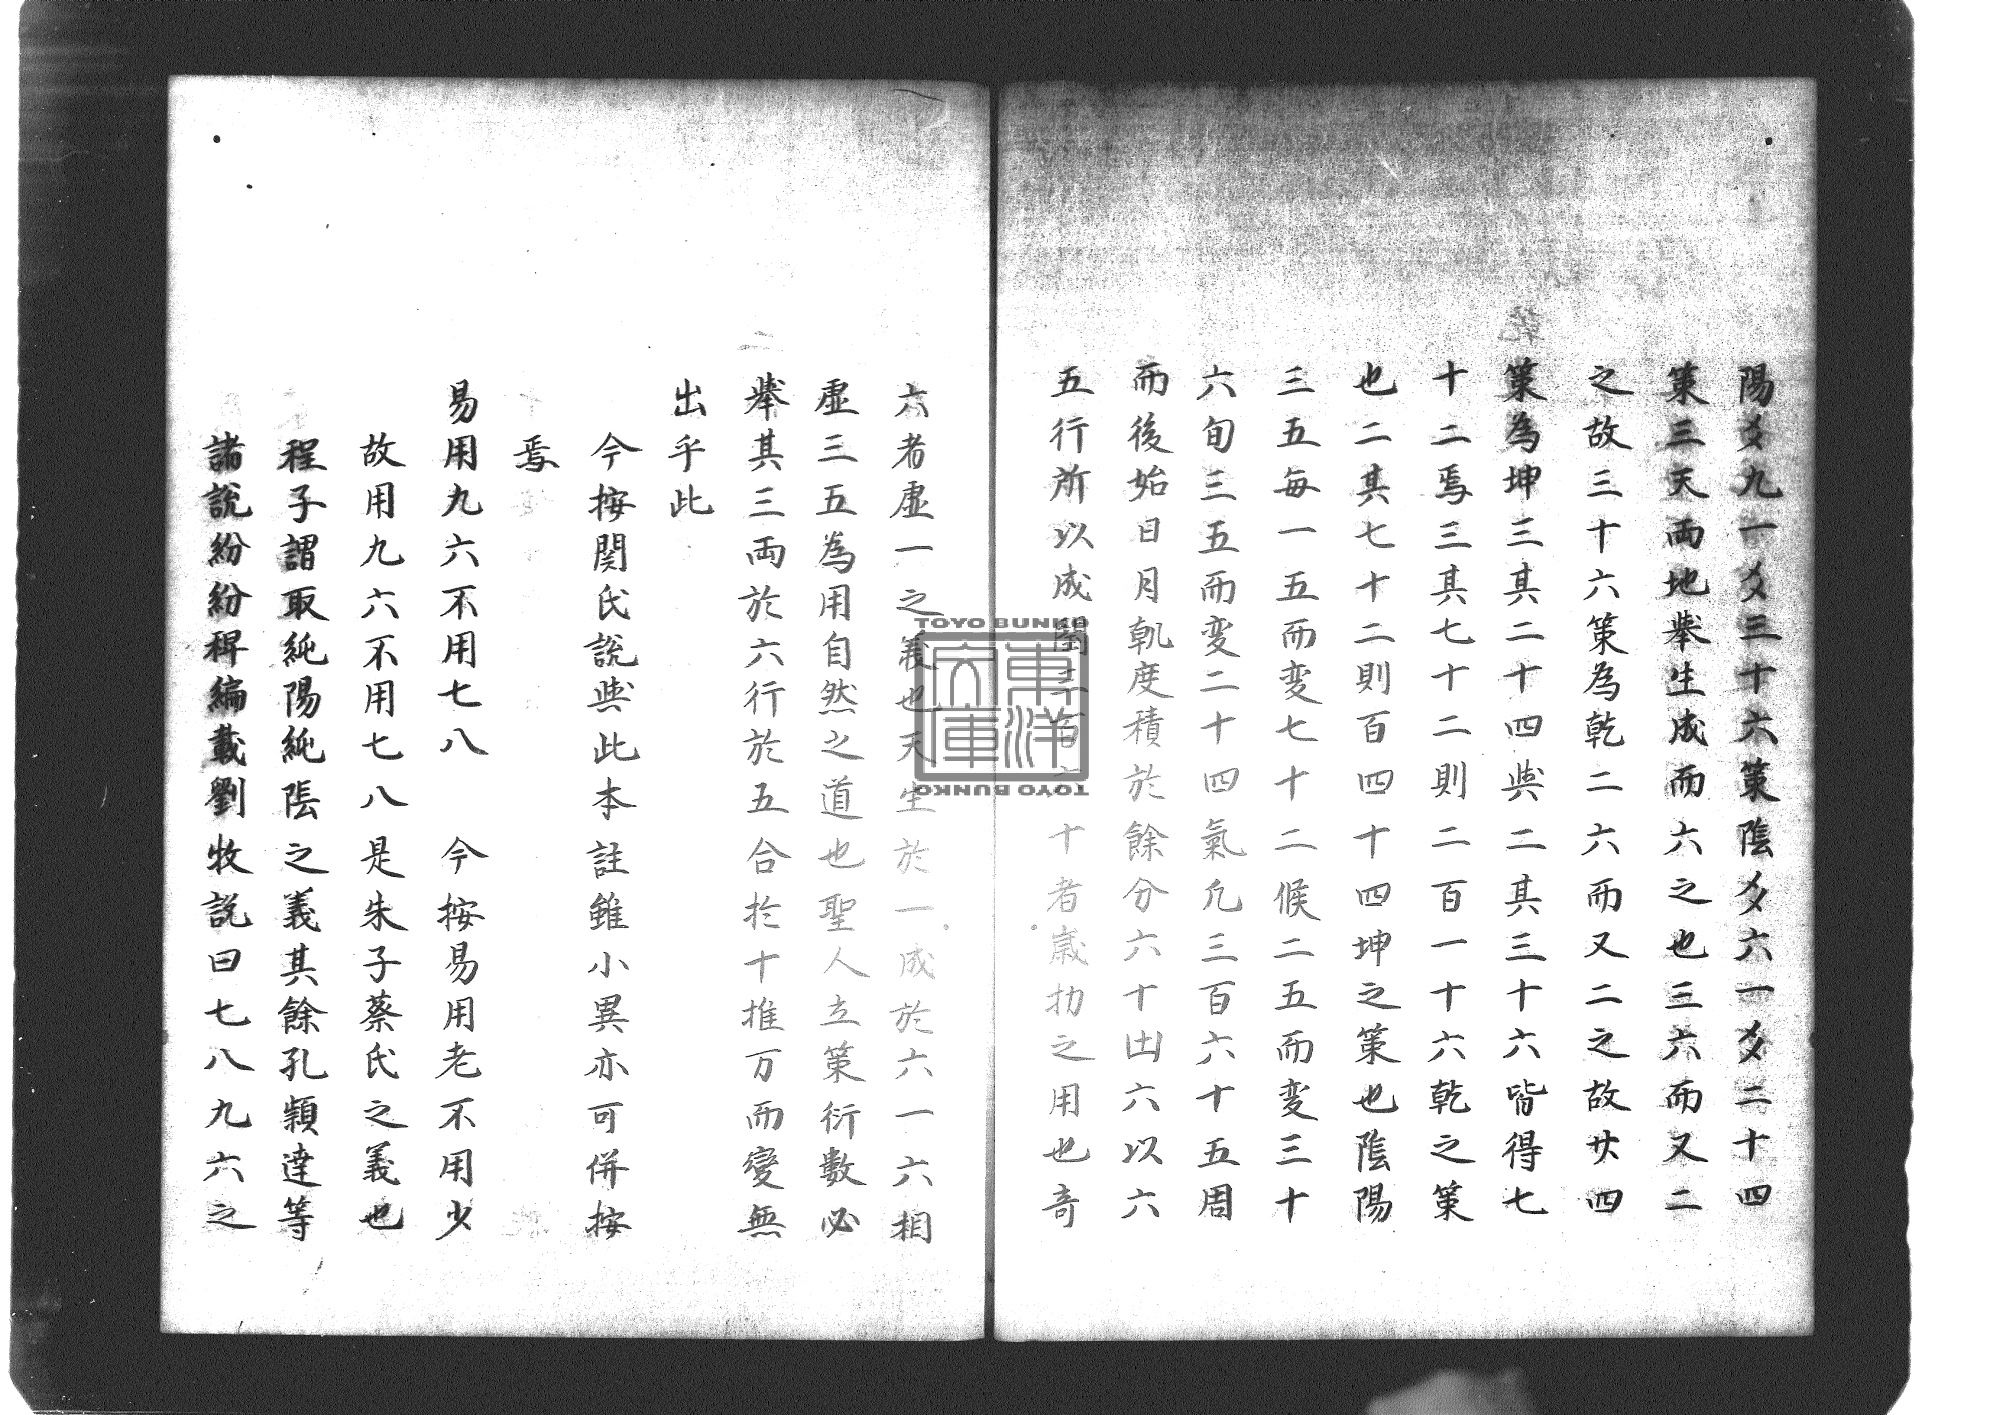 陽爻九一爻三十六策陰爻六一爻二十四
策三天両地挙生成而六之也三六而又二
之故三十六策為乾二六而又二之故廿四
策為坤三其二十四与二其三十六皆得七
十二焉三其七十二則二百一十六乾之策
也二其七十二則百四十四坤之策也陰陽
三五毎一五而変七十二候二五而変三十
六旬三五而変二十四氣凢三百六十五周
而後始日月軌度積於餘分六十出六以六
五行所以成閏 百六十者歳扐之用也奇
六者虚一之義也天生於一成於六一六相
虚三五為用自然之道也聖人立策衍數必
挙其三両於六行於五合於十推万而變無
出乎此
今按関氏説与此本註雖小異亦可併按
焉
易用九六不用七八 今按易用老不用少
故用九六不用七八是朱子蔡氏之義也
程子謂取純陽純陰之義其餘孔穎達等
諸説紛紛稗編載劉牧説曰七八九六之
TOYO BUNKO
東洋文庫
TOYO BUNKO